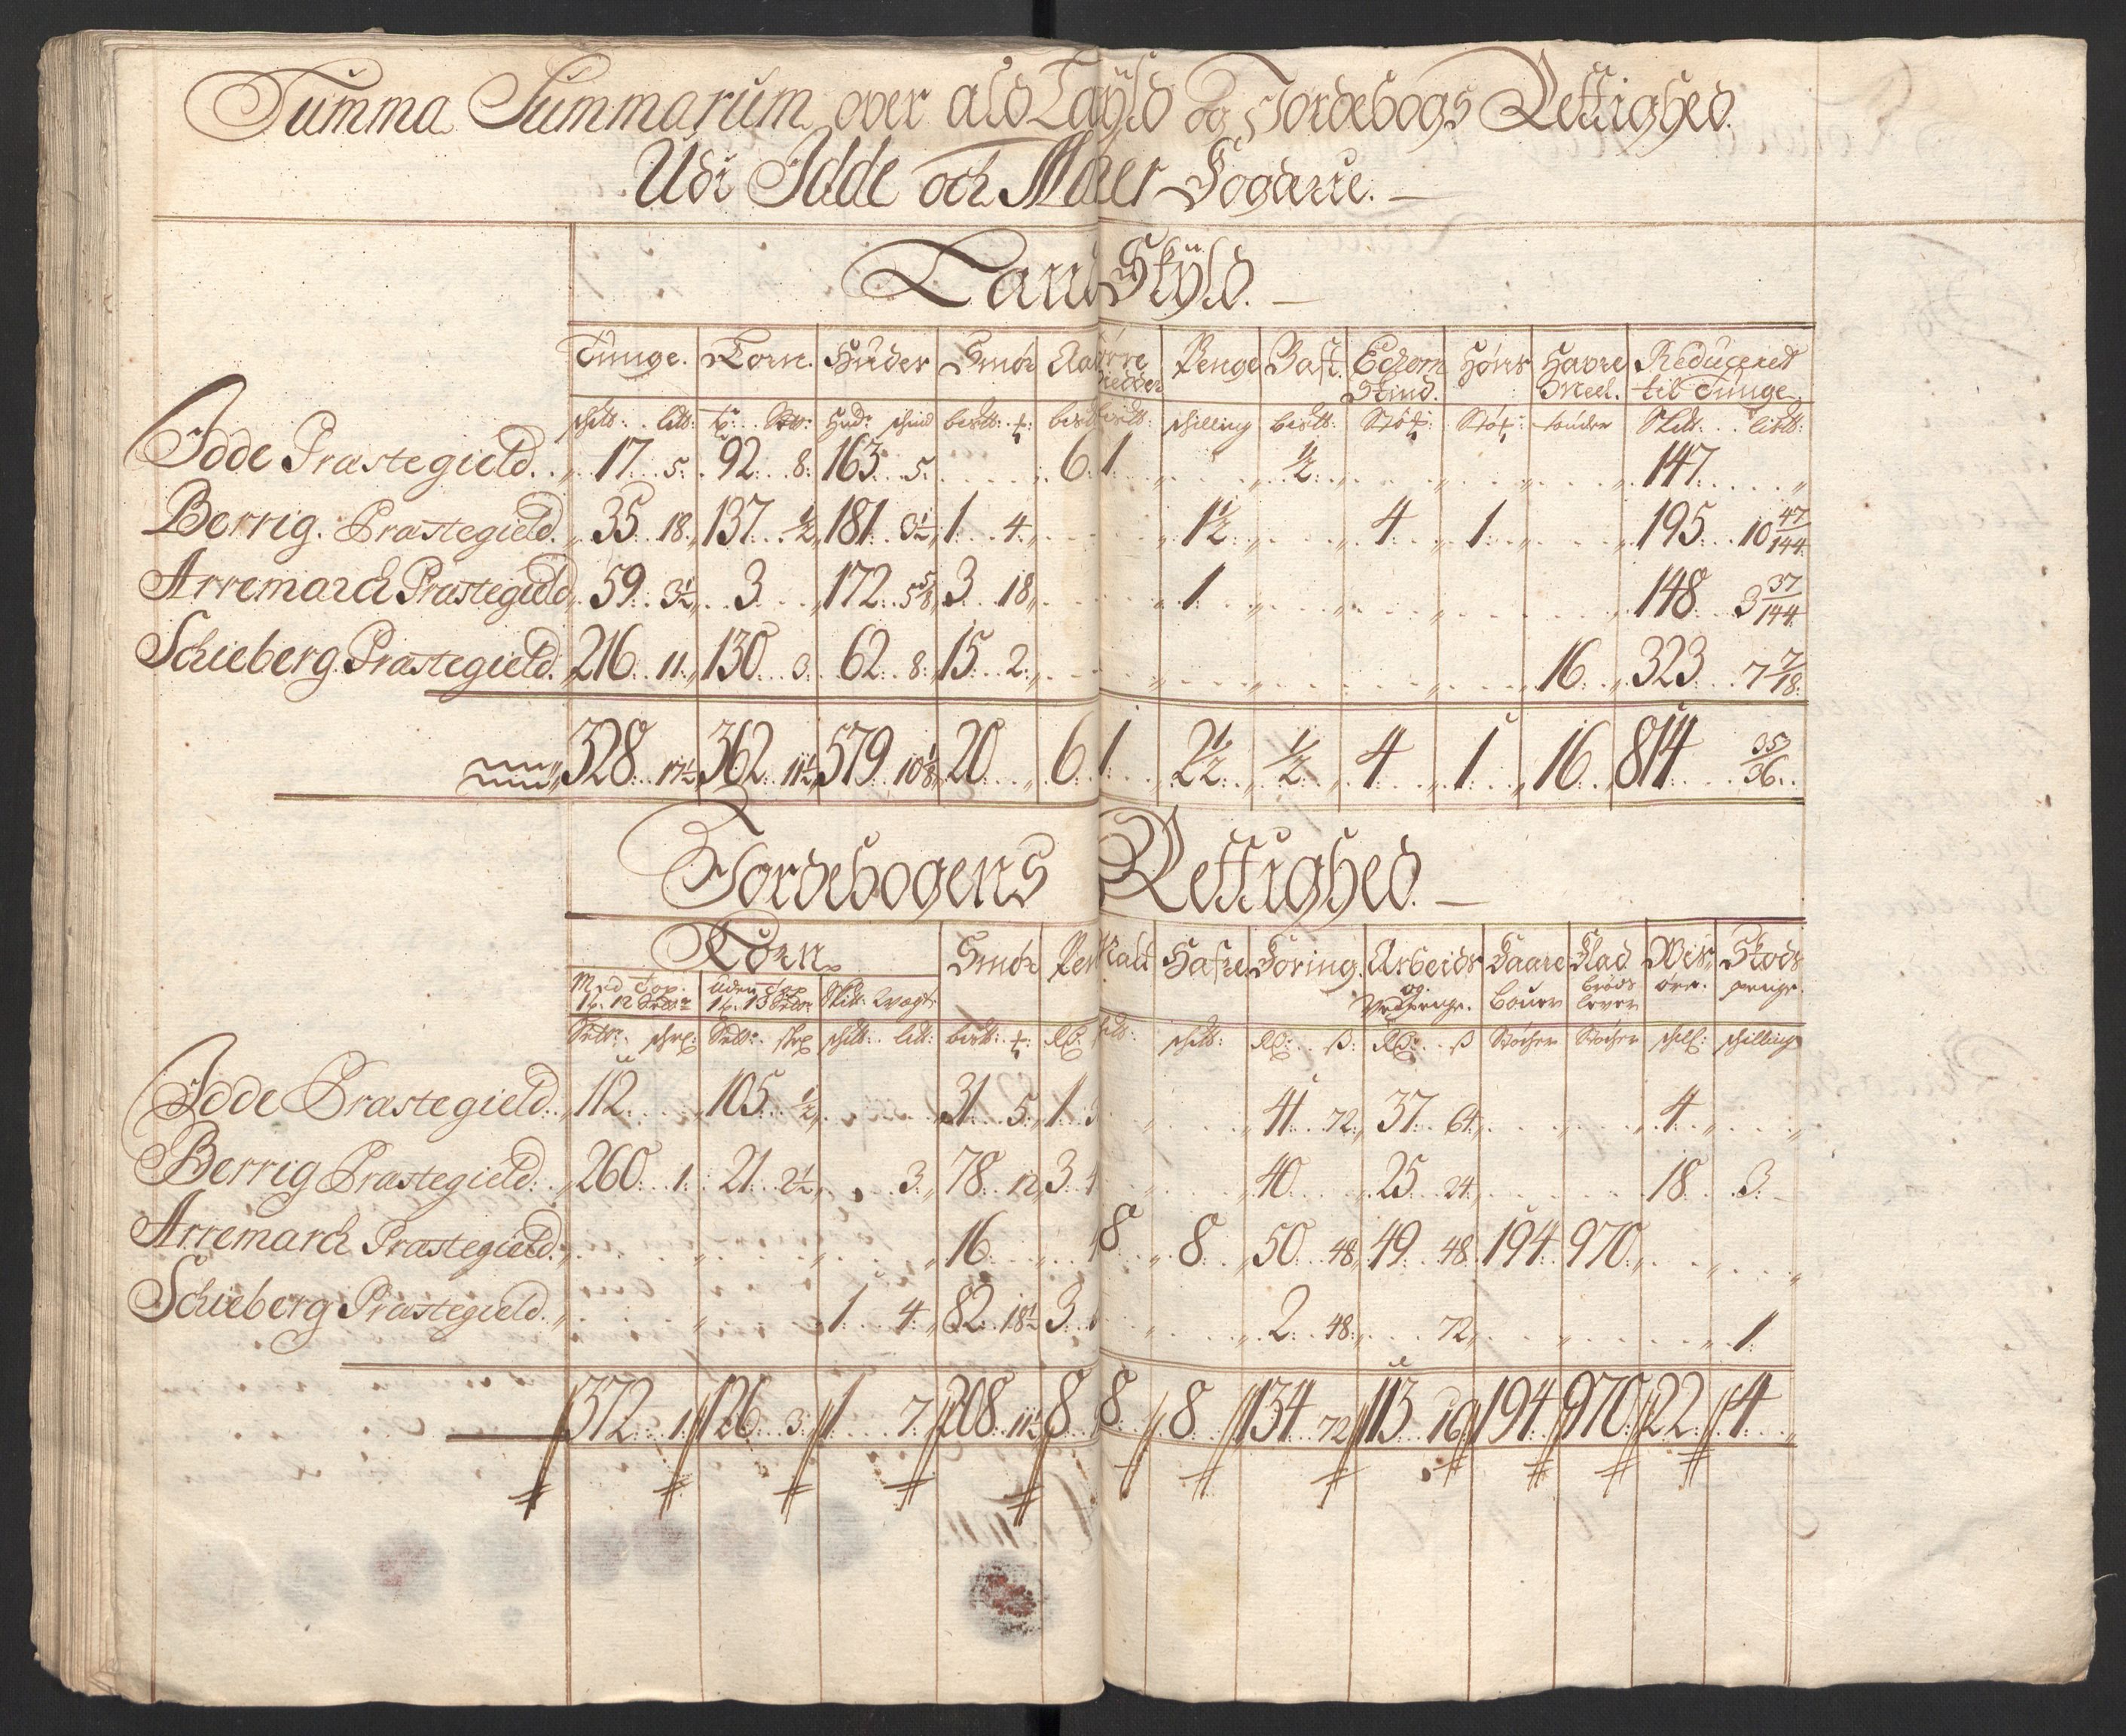 Summa Summarum over ald Land Skyld og Jordebogs Rettighed
Udi Idde och Marker Fogderie.
Land Skyld.
Tunge. Korn. Huder Smör Penge Bast. Echorn Skind. Höns Hafre Meel. Reduceret til Tunge
Idde Præstegield. 17 5. 92 8. 163 5. 6 1 ½ 147
Berrig. Præstegield. 35 18. 137 ½ 181 3½ 1 4. 1½ 4 1 195 10 47/144
Arremarch Præstegield 59 3½ 3 172 5 5/8 3 18 1 148 3 37/144
Schieberg. Præstegield. 216 11. 130 3. 62 8. 15 2. 16 323 7 7/18
328 17½ 362 11½ 579 10 1/8 20 6 1 2½ ½ 4 1 16 814 35/36
Jordebogens Rettighed.
Korn Smör Malt Hafre Föring. Arbeids og Penge. Baare Bouer Flad bröds lever Wis öre. Skods penge.
Med Top 1 t. 12 Uden Top 1 t. 13 Skill. Wægt
Idde Præstegield. 112 105 ½ 31 5. 1 41 72. 37 64. 4
Berrig Præstegield. 260 1. 21 2½ 3. 78 12 3 40 25 24. 18. 3.
Arremarch Præstegield. 16 8 8 50 48 49 48 194 970
Schieberg Præstegield. 1 4. 82 18½ 3 2 48. 72 1
372 1. 126 3. 1 7. 208 11½ 8 8 8 134 72 113 16 194 970 22 4